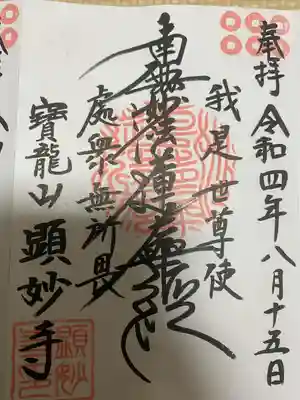 奉拝 令和四年八月十五日
我是世尊使
南無妙法蓮華経
處衆無所畏
寶龍山 顕妙寺